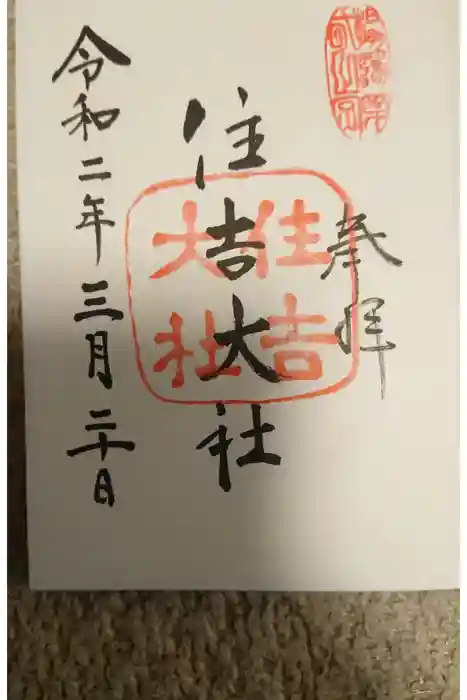 奉拝
住吉大社
住吉
大社
令和二年三月二十日